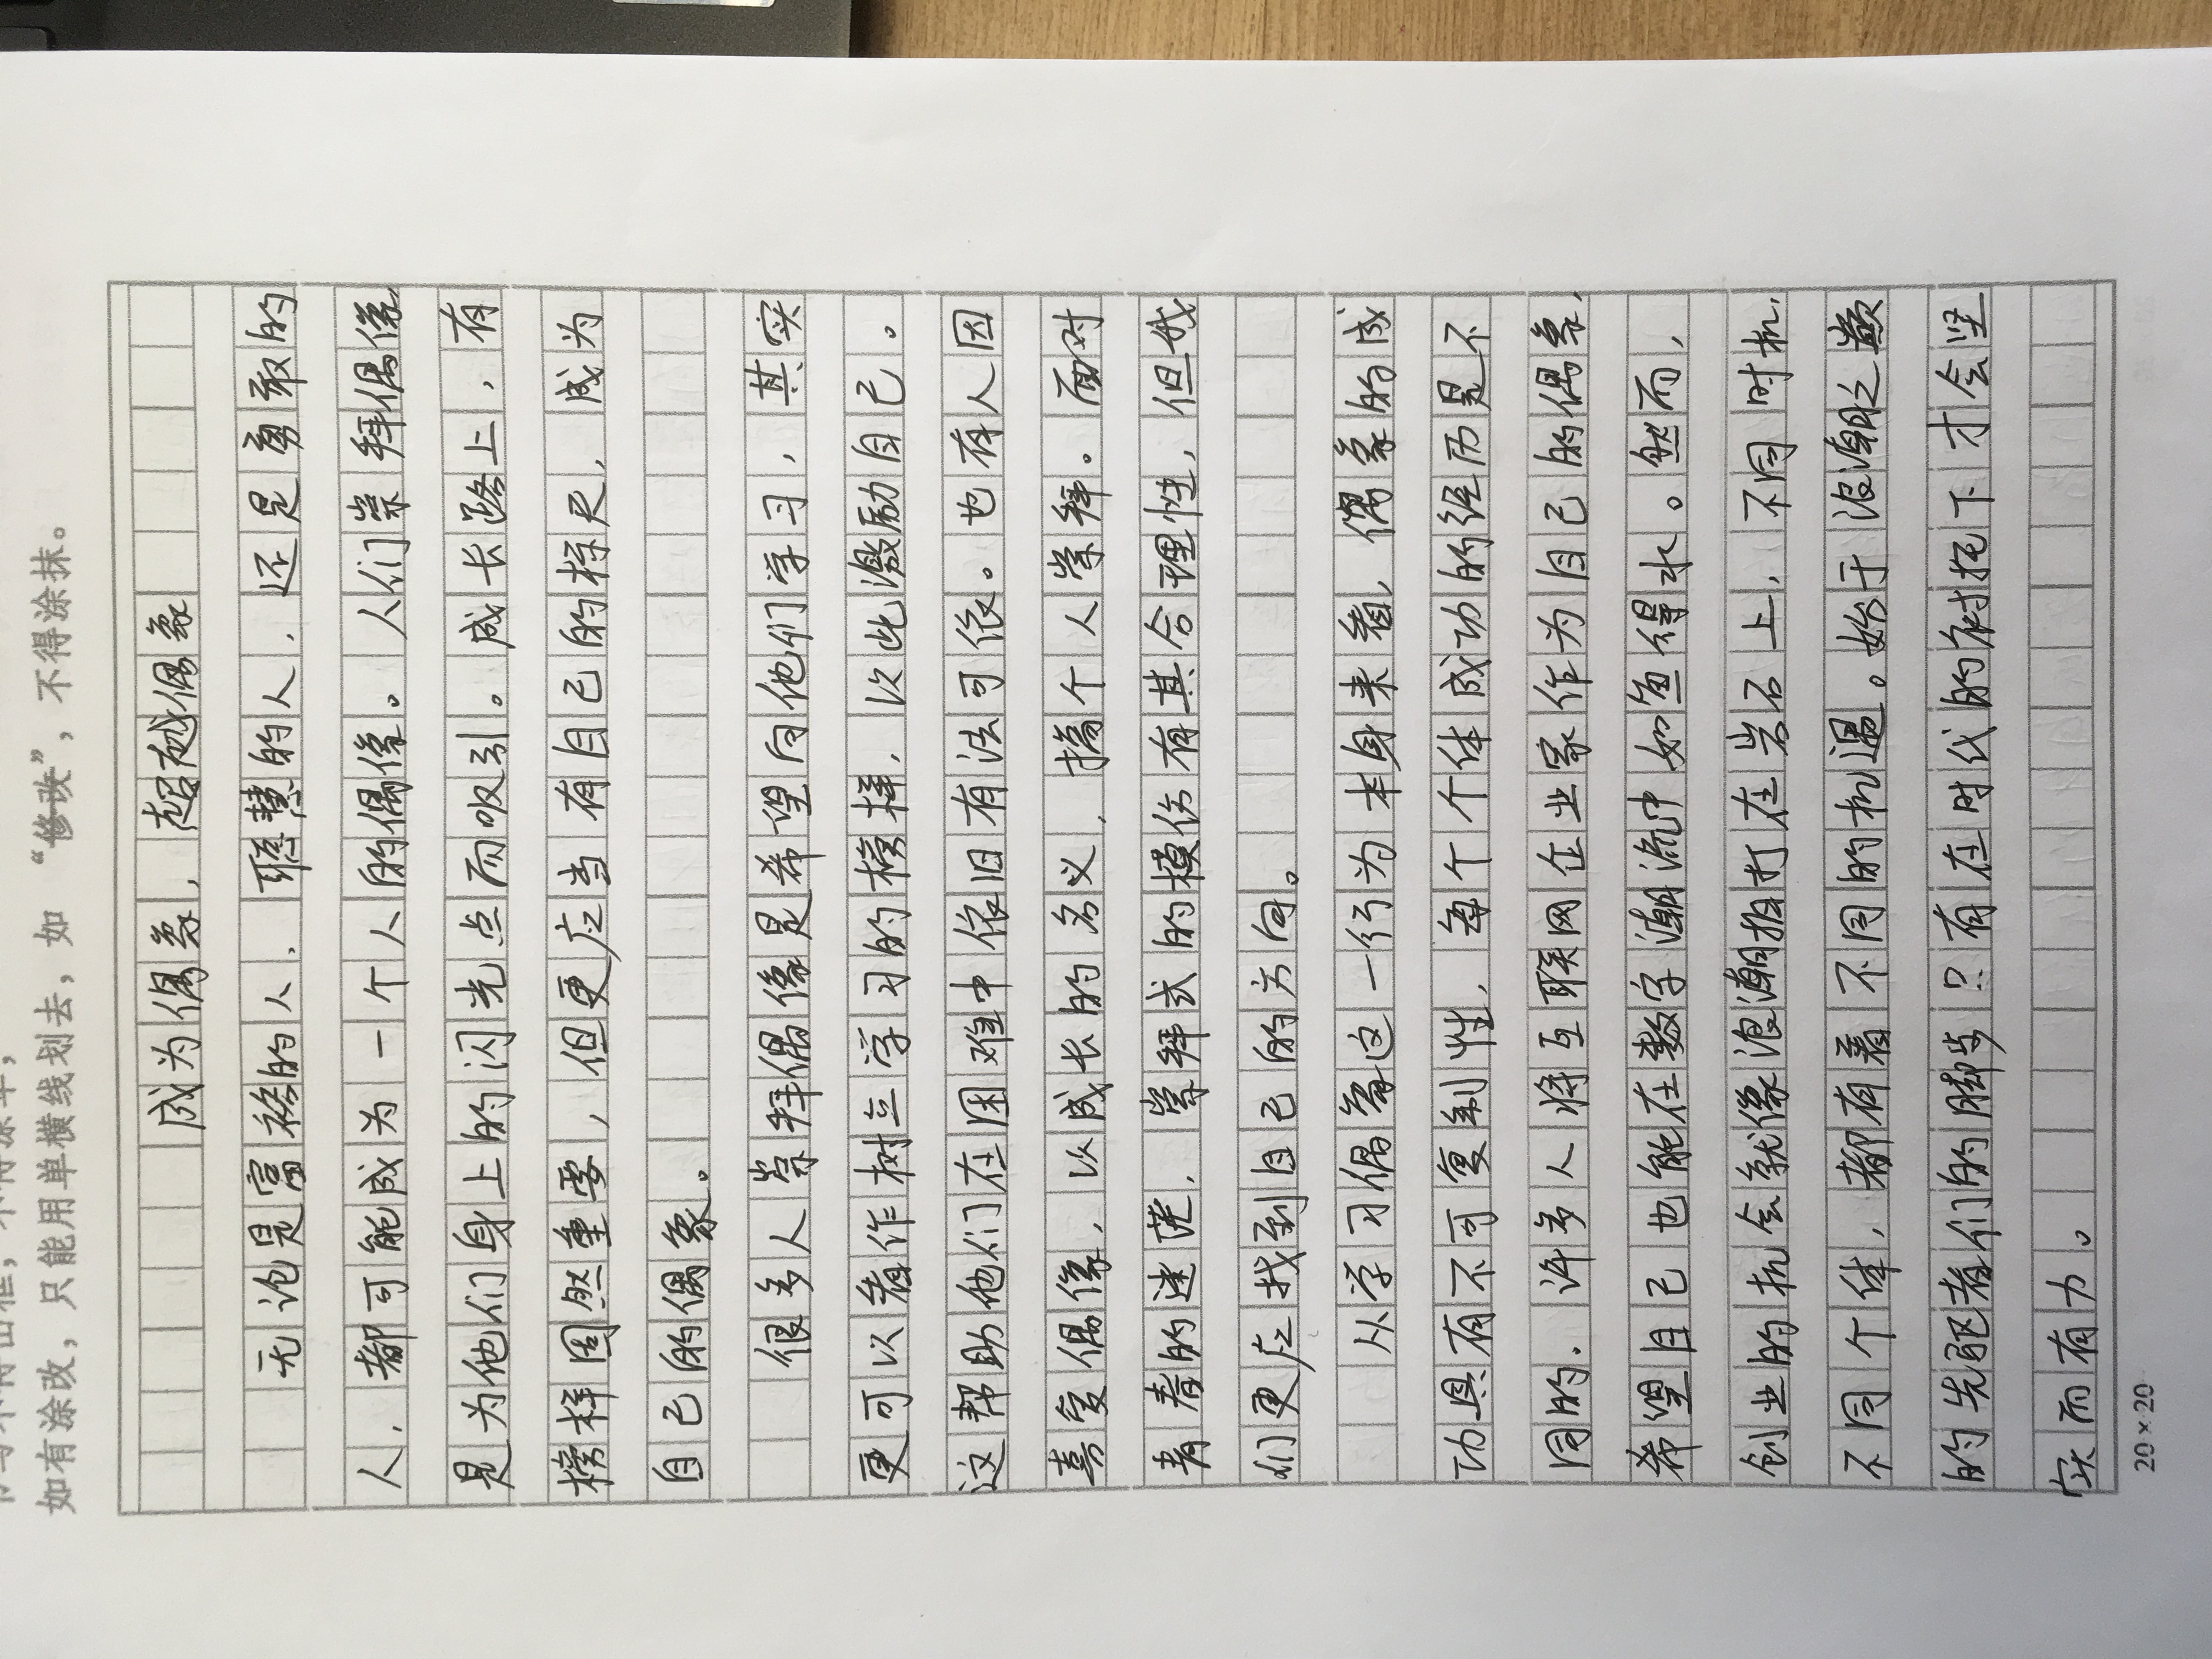 如有涂改，只能用单横线划去，如“修改”，不得涂抹。
成为偶象，超越偶象
无论是富裕的人、聪慧的人，还是勇敢的
人，都可能成为一个人的偶像。人们崇拜偶像
是为他们身上的闪光点而吸引。成长路上，有
榜样固然重要，但更应当有自己的标尺，成为
自己的偶象。
很多人崇拜偶像是希望向他们学习，其实
更可以看作树立学习的榜样，以此激励自己。
这帮助他们在困难中依旧有法可依。也有人因
喜爱偶像，以成长的名义，搞个人崇拜。面对
青春的迷茫，崇拜式的模仿有其合理性，但我
们更应找到自己的方向。
从学习偶像这一行为本身来看，偶象的成
功具有不可复制性，每个个体成功的经历是不
同的。许多人将互联网企业家作为自己的偶象，
希望自己也能在数字潮流中如鱼得水。然而，
创业的机会就像浪潮拍打在岩石上，不同时机，
不同个体，都有着不同的机遇。始于浪潮之巅
的先驱者们的脚步只有在时代的衬托下才会坚
实而有力。
20×20